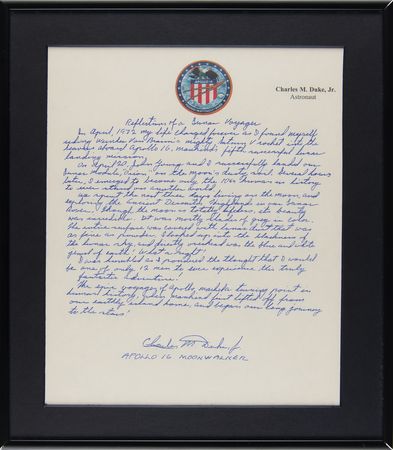 Charles M. Duke, Jr.
Astronaut
Reflections of a Lunar Voyager
In April, 1972 my life changed forever as I found myself
riding Wernher Von Braun's mighty Saturn V rocket into the
heavens aboard Apollo 16, Mankind's fifth successful lunar
landing mission.
On April 20, John Young and I successfully landed our
Lunar Module, Orion, on the moon's dusty surface. Several hours
later, I emerged to become only the 10th human in history
to ever stand on another world.
We spent the next three days living on the moon, and
exploring the ancient Descartes Highlands in our Lunar
Rover. Though the moon is totally lifeless, its beauty
was incredible. It was mostly shades of gray in color.
The entire surface was covered with lunar dust that was
as fine as powder. I looked up into the blackness of
the lunar sky, and directly overhead was the blue and white
jewel of earth. What a sight!
I was humbled as I pondered the thought that I would
be one of only 12 men to ever experience this truly
fantastic adventure.
The epic voyages of Apollo marked a turning point in
human history, when Mankind first lifted off from
our earthly island home, and began our long journey
to the stars!
Charles M Duke Jr
APOLLO 16 MOONWALKER